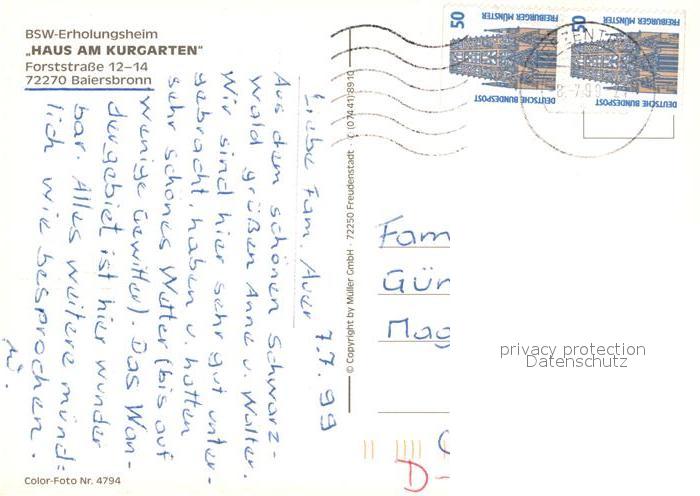 BSW-Erholungsheim
„HAUS AM KURGARTEN"
Forststraße 12–14
72270 Baiersbronn
Liebe Fam. Auer 7.7.99
Aus dem schönen Schwarz-
wald grüßen Anne u. Walter.
Wir sind hier sehr gut unter-
gebracht, haben u. hatten
sehr schönes Wetter (bis auf
wenige Gewitter). Das Wan-
dergebiet ist hier wunder
bar. Alles weitere münd-
lich wie besprochen.
Color-Foto Nr. 4794
© Copyright by Müller GmbH · 72250 Freudenstadt · ✆ (07441) 8910
50
FREIBURGER MÜNSTER
DEUTSCHE BUNDESPOST
50
FREIBURGER MÜNSTER
DEUTSCHE BUNDESPOST
8.-7.99
Fam
Gün
Mag
D-
privacy protection
Datenschutz